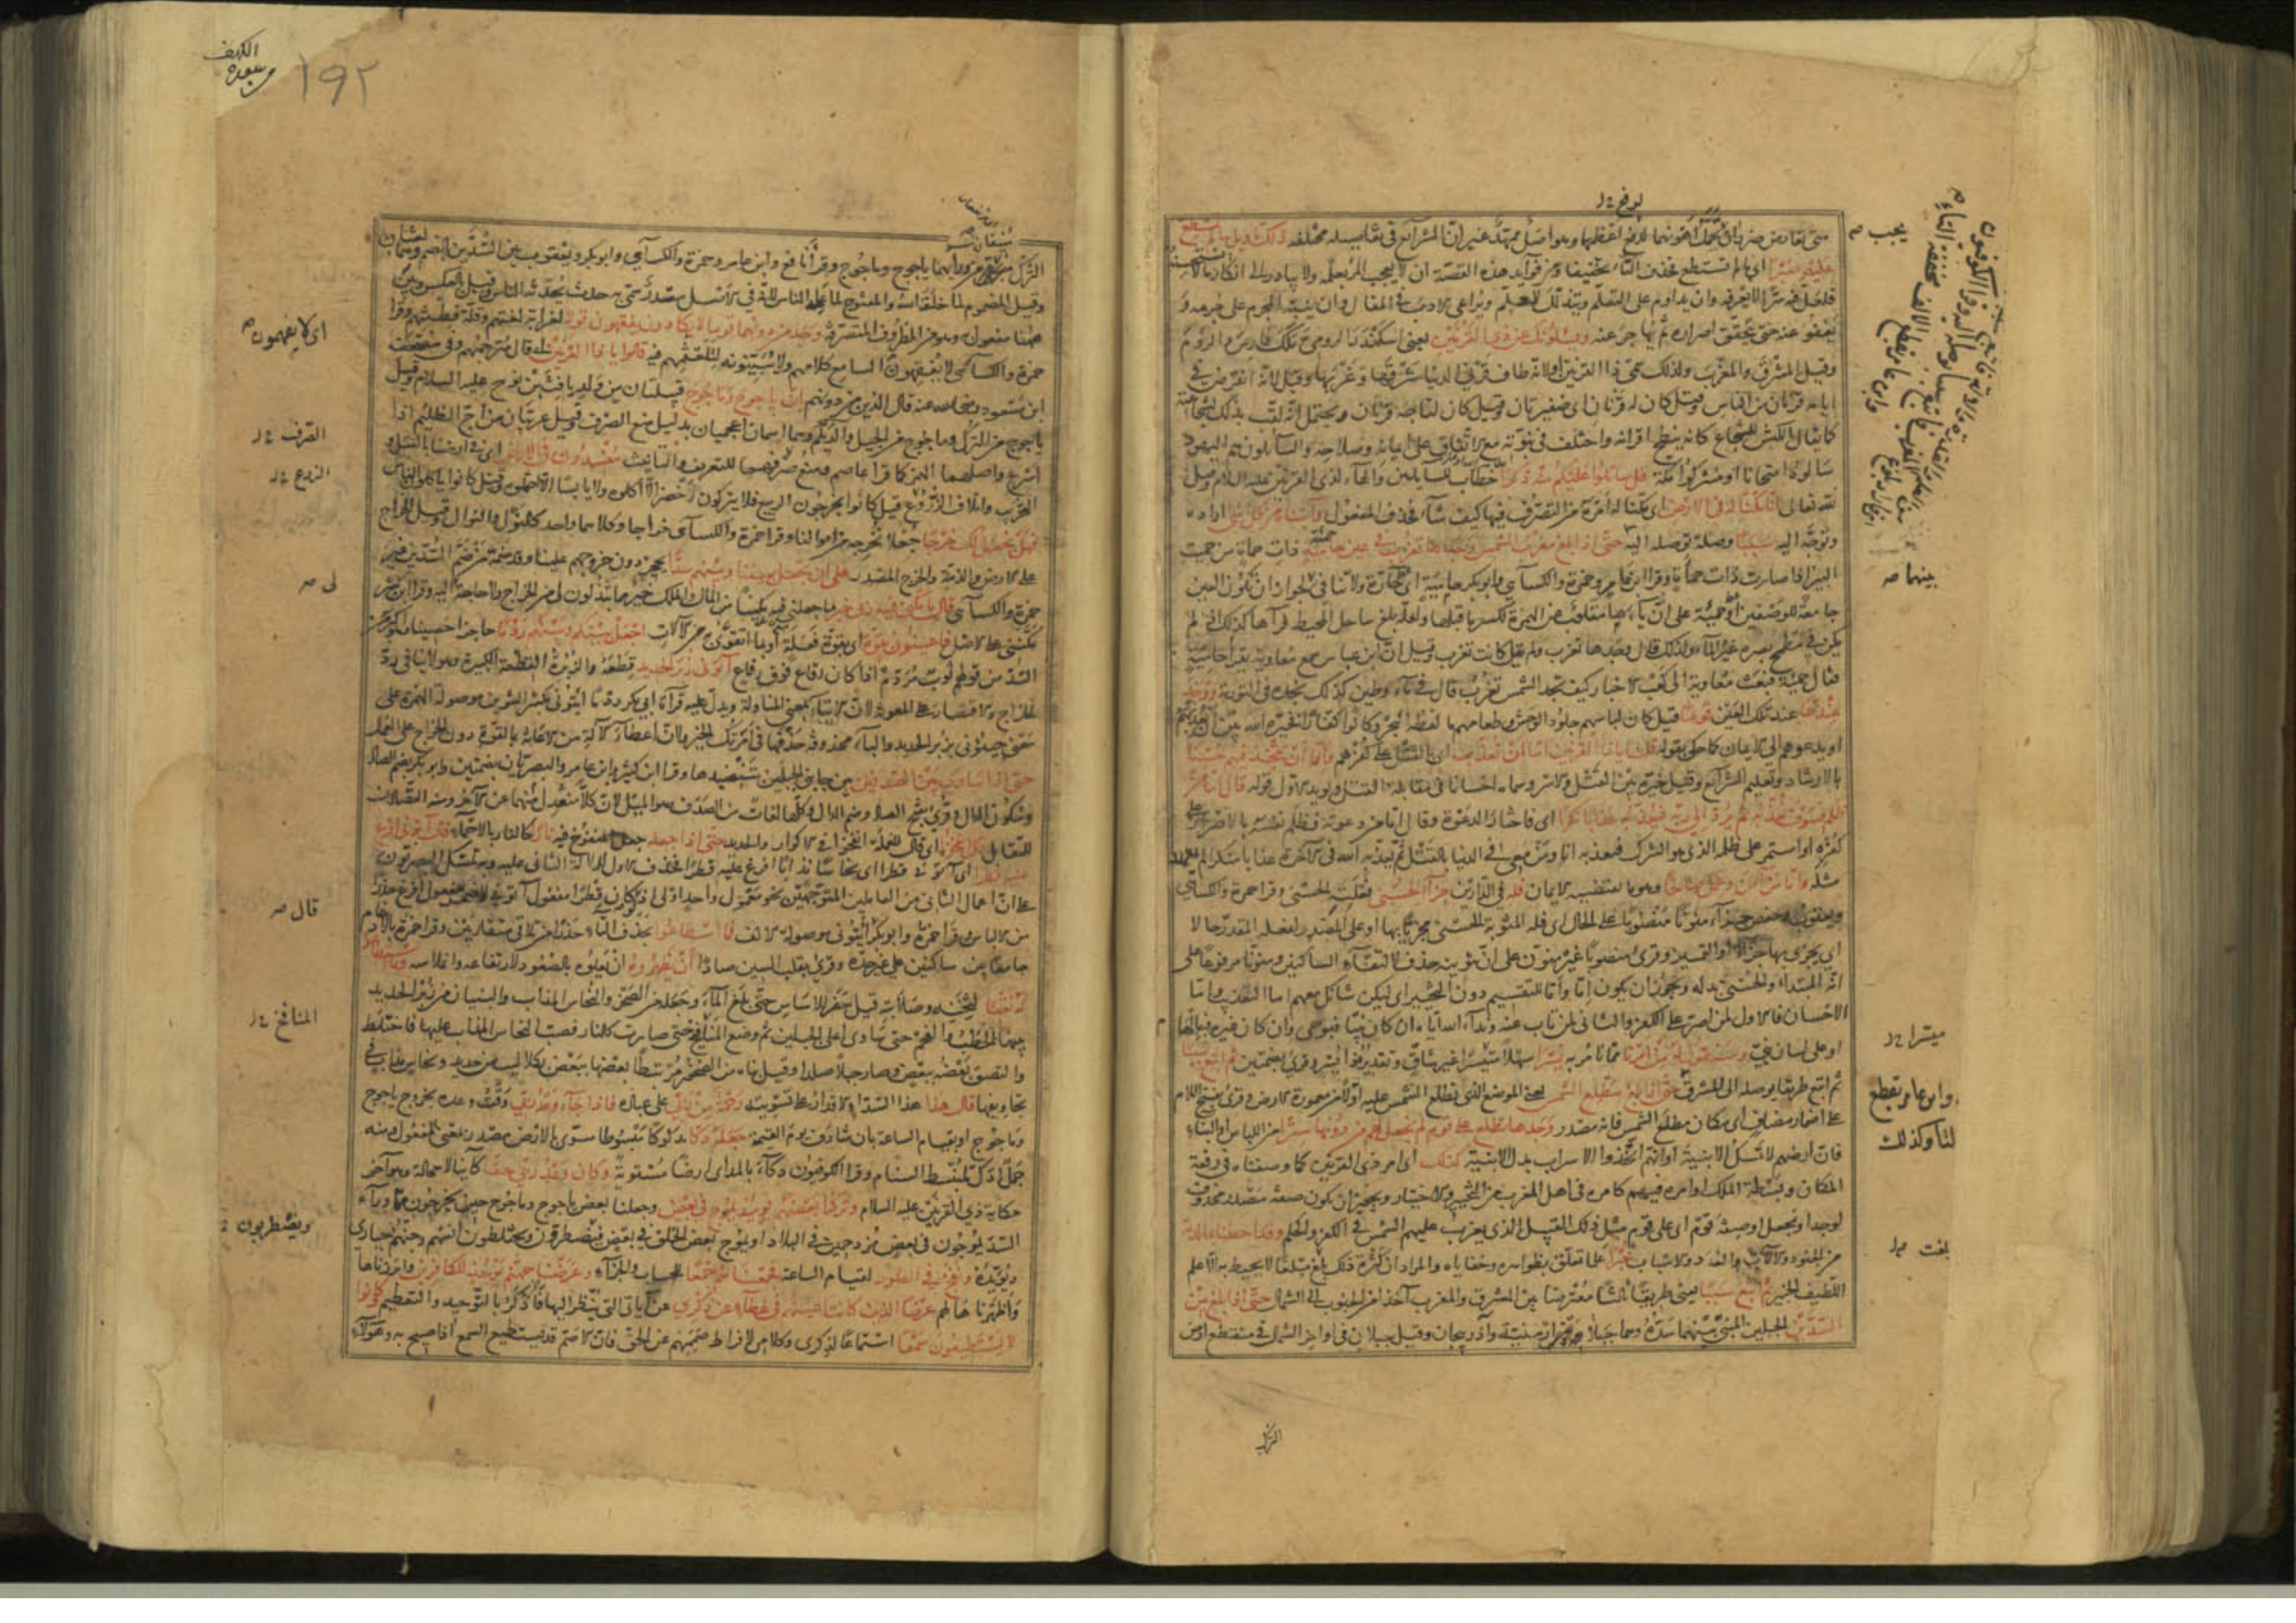 متى تعارض ضرران تحمل اهونهما لدفع اعظمهما وهو اصل ممهد غير ان الشرائع في تفاصيله مختلفة ذلك تاويل ما لم تسطع
عليه صبرا اى ما لم تستطع فحذف التاء تخفيفا ومن فوايد هذه القصة ان لا يعجب المرء بعلمه ولا يبادر الى انكار ما لا
فلعل فيه سرا لا يعرفه وان يداوم على التعلم ويتذلل للمعلم ويراعى الادب فى المقال وان ينبه المجرم على جرمه و
يعفو عنه حتى يتحقق اصراره ثم يهاجر عنه ويسئلونك عن ذى القرنين يعنى اسكندر الرومى ملك فارس والروم
وقيل المشرق والمغرب ولذلك سمى ذا القرنين او لانه طاف قرنى الدنيا شرقها وغربها وقيل لانه انقرض فى
ايامه قرنان من الناس وقيل كان له قرنان اى ضفيرتان وقيل كان لتاجه قرنان ويحتمل انه لقب بذلك لشجاعته
كما يقال الكبش للشجاع كانه ينطح اقرانه واختلف فى نبوته مع الاتفاق على ايمانه وصلاحه والسائلون هم اليهود
سالوه امتحانا او مشركوا مكة قل ساتلوا عليكم منه ذكرا خطاب للسايلين والهاء لذى القرنين عليه السلام وقيل
لله تعالى انا مكنا له فى الارض اى مكنا له امره من التصرف فيها كيف شاء فحذف المفعول واتيناه من كل شئ اراده
وتوجه اليه سببا وصلة توصله اليه حتى اذا بلغ مغرب الشمس وجدها تغرب فى عين حامية ذات حماة من حميت
البئر اذا صارت ذات حماة وقرا ابن عامر وحمزة والكسآئى وابو بكر حامية اى حارة ولا تنافى لجواز ان تكون العين
جامعة للوصفين او حمية على ان ياءها مقلوبة عن الهمزة لكسر ما قبلها ولعله بلغ ساحل المحيط فرآها كذلك اذ لم
يكن فى مطمح بصره غير الماء ولذلك قال وجدها تغرب ولم يقل كانت تغرب وقيل ان ابن عباس سمع معاوية يقرا حامية
فقال حمئة فبعث معاوية الى كعب الاخبار كيف تجد الشمس تغرب قال فى ماء وطين كذلك نجده فى التورية ووجد
عندها عند تلك العين قوما قيل كان لباسهم جلود الوحش وطعامهم ما لفظه البحر وكانوا كفارا فخيره الله بين ان يعذبهم
او يدعوهم الى الايمان كما حكى بقوله قلنا يا ذا القرنين اما ان تعذب اى بالقتل على كفرهم واما ان تتخذ فيهم حسنا
بالارشاد وتعليم الشرائع وقيل خيره بين القتل والاسر وسماه احسانا فى مقابلة القتل ويويد الاول قوله قال اما من
ظلم فسوف نعذبه ثم يرد الى ربه فيعذبه عذابا نكرا اى فاختار الدعوة وقال اما من دعوته فظلم نفسه بالاصرار على
كفره او استمر على ظلمه الذى هو الشرك فنعذبه انا ومن معى فى الدنيا بالقتل ثم يعذبه الله فى الآخرة عذابا منكرا لم يعهد
مثله واما من آمن وعمل صالحا وهو ما يقتضيه الايمان فله فى الدارين جزآء الحسنى فعلته الحسنى وقرا حمزة والكسآئى
ويعقوب وحفص جزآء منونا منصوبا على الحال اى فله المثوبة الحسنى مجزيا بها او على المصدر لفعله المقدر حالا
اى يجزى بها جزآء او التمييز وقرئ منصوبا غير منون على ان تنوينه حذف لالتقاء الساكنين ومنونا مرفوعا على
انه المبتداء والحسنى بدله ويجوز ان يكون اما واما للتقسيم دون التخيير اى ليكن شانك معهم اما التعذيب واما
الاحسان فالاول لمن اصر على الكفر والثانى لمن تاب عنه وندآء الله اياه ان كان نبيا فبوحى وان كان غيره فبالهام
او على لسان نبى وسنقول له من امرنا مما نامر به يسرا سهلا متيسرا غير شاق وتقديره ذا يسر وقرئ بضمتين ثم اتبع سببا
ثم اتبع طريقا يوصله الى المشرق حتى اذا بلغ مطلع الشمس يعنى الموضع الذى تطلع الشمس عليه اولا من معمورة الارض وقرئ بفتح اللام
على اضمار مضاف اى مكان مطلع الشمس فانه مصدر وجدها تطلع على قوم لم نجعل لهم من دونها سترا من اللباس او البناء
فان ارضهم لا تمسك الابنية او انهم اتخذوا الاسراب بدل الابنية كذلك اى امر ذى القرنين كما وصفناه فى رفعة
المكان وبسطة الملك او امره فيهم كامره فى اهل المغرب من التخيير والاختيار ويجوز ان يكون صفة مصدر محذوف
لوجد او نجعل او صفة قوم اى على قوم مثل ذلك القبيل الذى تغرب عليهم الشمس فى الكفر والحكم وقد احطنا بما لديه
من الجنود والآلات والعدد والاسباب خبرا علما تعلق بظواهره وخفاياه والمراد ان كثرة ذلك بلغ مبلغا لا يحيط به الا علم
اللطيف الخبير ثم اتبع سببا يعنى طريقا ثالثا معترضا بين المشرق والمغرب آخذا من الجنوب الى الشمال حتى اذا بلغ بين
السدين الجبلين المبنى بينهما سده وهما جبلا ارمينية وآذربيجان وقيل جبلان فى اواخر الشمال فى منقطع ارض
يجب
بينهما
ميسرا
وابن عامر بقطع
لنا وكذلك
بلغت
الترك
الكهف
سورة
١٩٢
الترك من ورائهما ياجوج وماجوج وقرا نافع وابن عامر وحمزة والكسآئى وابو بكر ويعقوب بين السدين بالضم وهما لغتان
وقيل المضموم لما خلقه الله والمفتوح لما عمله الناس لانه فى الاصل مصدر سمى به حدث يحدثه الناس وقيل بالعكس وبين
ههنا مفعول به وهو من الظروف المتصرفة وجد من دونهما قوما لا يكادون يفقهون قولا لغرابة لغتهم وقلة فطنتهم وقرا
حمزة والكسآئى لا يفقهون السامع كلامهم ولا يبينونه لتلعثمهم فيه قالوا يا ذا القرنين اى قال مترجمهم وفى مصحف
ابن مسعود رضى الله عنه قال الذين من دونهم ان ياجوج وماجوج قبيلتان من ولد يافث بن نوح عليه السلام وقيل
ياجوج من الترك وماجوج من الجيل والديلم وهما اسمان اعجميان بدليل منع الصرف وقيل عربيان من اج الظليم اذا
اسرع واصلهما الهمز كما قرا عاصم ومنع صرفهما للتعريف والتانيث مفسدون فى الارض اى فى ارضنا بالقتل و
التخريب واتلاف الزروع قيل كانوا يخرجون الربيع فلا يتركون اخضر الا اكلوه ولا يابسا الا احتملوه وقيل كانوا ياكلون الناس
فهل نجعل لك خرجا جعلا نخرجه من اموالنا وقرا حمزة والكسآئى خراجا وكلاهما واحد كالنول والنوال وقيل الخراج
على الارض والذمة والخرج المصدر على ان تجعل بيننا وبينهم سدا يحجز دون خروجهم علينا وقد ضمه من ضم السدين غير
حمزة والكسآئى قال ما مكنى فيه ربى خير ما جعلنى فيه مكينا من المال والملك خير مما تبذلون لى من الخراج ولا حاجة اليه وقرا ابن كثير
مكننى على الاصل فاعينونى بقوة اى بقوة فعلة او بما اتقوى به من الآلات اجعل بينكم وبينهم ردما حاجزا حصينا وهو اكبر من
السد من قولهم ثوب مردم اذا كان رقاع فوق رقاع آتونى زبر الحديد قطعه والزبرة القطعة الكبيرة وهو لا ينافى رد
الخراج والاقتصار على المعونة لان الايتاء بمعنى المناولة ويدل عليه قرآءة ابى بكر ردما ايتونى بكسر التنوين موصولة الهمزة على
معنى جيئونى بزبر الحديد والباء محذوفة حذفها فى امرتك الخير ولان اعطآء الآلة من الاعانة بالقوة دون الخراج على العمل
حتى اذا ساوى بين الصدفين بين جانبى الجبلين بتنضيدها وقرا ابن كثير وابن عامر والبصريان بضمتين وابو بكر بضم الصاد
وسكون الدال وقرئ بفتح الصاد وضم الدال وكلها لغات من الصدف وهو الميل لان كلا منعدل منهما عن الآخر ومنه التصادف
للتقابل قال انفخوا اى قال للعملة انفخوا فى الاكوار والحديد حتى اذا جعله جعل المنفوخ فيه نارا كالنار بالاحماء قال آتونى افرغ
عليه قطرا اى آتونى قطرا اى نحاسا مذابا افرغ عليه قطرا فحذف الاول لدلالة الثانى عليه وبه تمسك البصريون
على ان اعمال الثانى من العاملين المتوجهين نحو معمول واحد اولى اذ لو كان قطرا مفعول آتونى لاضمر مفعول افرغ حذرا
من الالباس وقرا حمزة وابو بكر ايتونى موصولة الالف فما اسطاعوا بحذف التاء حذرا من تلاقى متقاربين وقرا حمزة بالادغام
جامعا بين ساكنين على غير حده وقرئ بقلب السين صادا ان يظهروه ان يعلوه بالصعود لارتفاعه وانملاسه وما استطاعوا
له نقبا لثخنه وصلابته قيل حفر للاساس حتى بلغ المآء وجعله من الصخر والنحاس المذاب والبنيان من زبر الحديد
بينهما الحطب والفحم حتى ساوى اعلى الجبلين ثم وضع المنافخ حتى صارت كالنار فصب النحاس المذاب عليها فاختلط
والتصق بعضه ببعض وصار جبلا صلدا وقيل بناه من الصخور مرتبطا بعضها ببعض بكلاليب من حديد ونحاس مذاب فى
تجاويفها قال هذا هذا السد او الاقدار على تسويته رحمة من ربى على عباده فاذا جآء وعد ربى وقت وعده بخروج ياجوج
وماجوج او بقيام الساعة بان شارف يوم القيمة جعله دكا مدكوكا مبسوطا مسوى بالارض مصدر بمعنى المفعول ومنه
جمل ادك لمنبسط السنام وقرا الكوفيون دكآء بالمد اى ارضا مستوية وكان وعد ربى حقا كائنا لا محالة وهو آخر
حكاية ذى القرنين عليه السلام وتركنا بعضهم يومئذ يموج فى بعض وجعلنا بعض ياجوج وماجوج حين يخرجون مما ورآء
السد يموجون فى بعض مزدحمين فى البلاد او يموج بعض الخلق فى بعض فيضطربون ويختلطون انسهم وجنهم حيارى
ويؤيده ونفخ فى الصور لقيام الساعة فجمعناهم جمعا للحساب والجزآء وعرضنا جهنم يومئذ للكافرين وابرزناها
واظهرناها لهم عرضا الذين كانت اعينهم فى غطآء عن ذكرى عن آياتى التى ينظر اليها فاذكر بالتوحيد والتعظيم وكانوا
لا يستطيعون سمعا استماعا لذكرى وكلامى لافراط صممهم عن الحق فان الاصم قد يستطيع السمع اذا صيح به وهؤلآء
اى لا يفهمون
الصرف
الزرع
لى
قال
المنافخ
ويضطربون